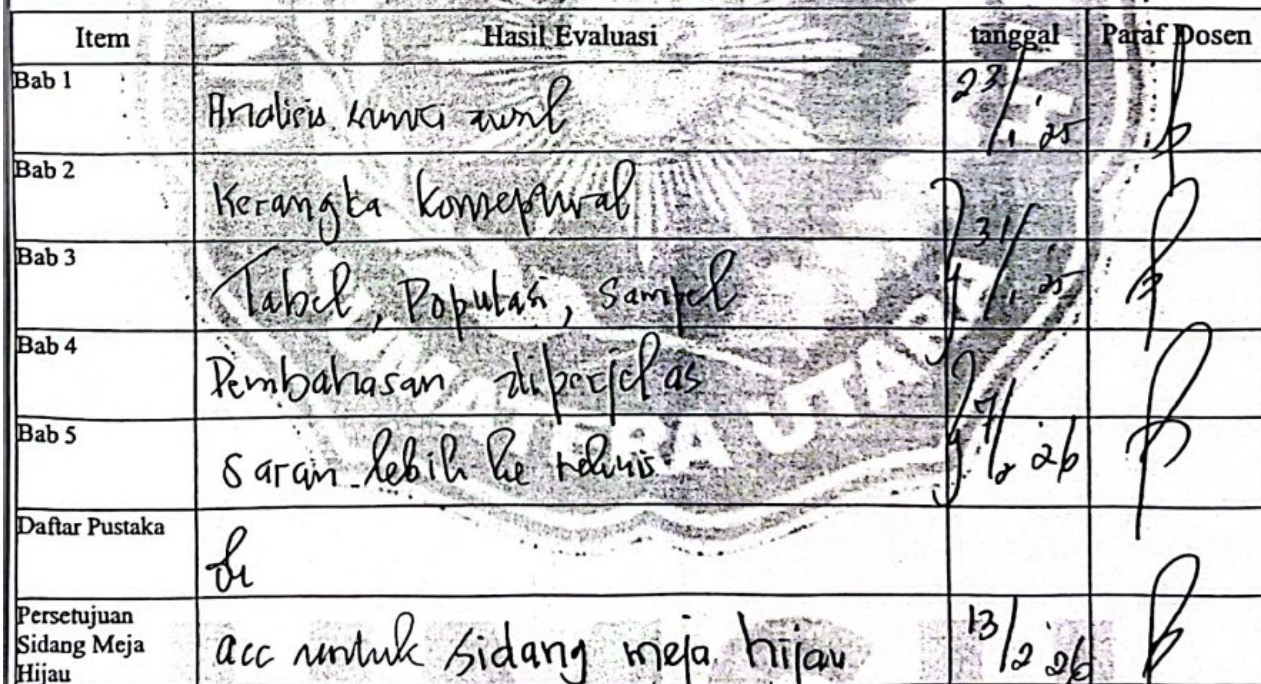 Item Hasil Evaluasi tanggal Paraf Dosen
Bab 1
Analisis awal 23/1 '25
Bab 2
Kerangka konseptual
31/1 '25
Bab 3
Tabel, Populasi, Sampel
Bab 4
Pembahasan diperjelas
7/2 '26
Bab 5
Saran lebih ke
Daftar Pustaka
Persetujuan
Sidang Meja
Hijau
acc untuk sidang meja hijau 13/2 '26
UMA ERA UTARA